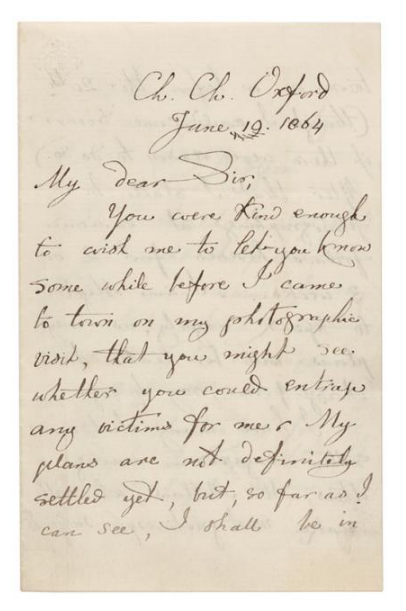 Ch. Ch. Oxford
June, 19. 1864
My dear Sir,
You were kind enough
to wish me to let you know
some while before I came
to town on my photographic
visit, that you might see
whether you could entrap
any victims for me. My
plans are not definitely
settled yet, but, so far as I
can see, I shall be in